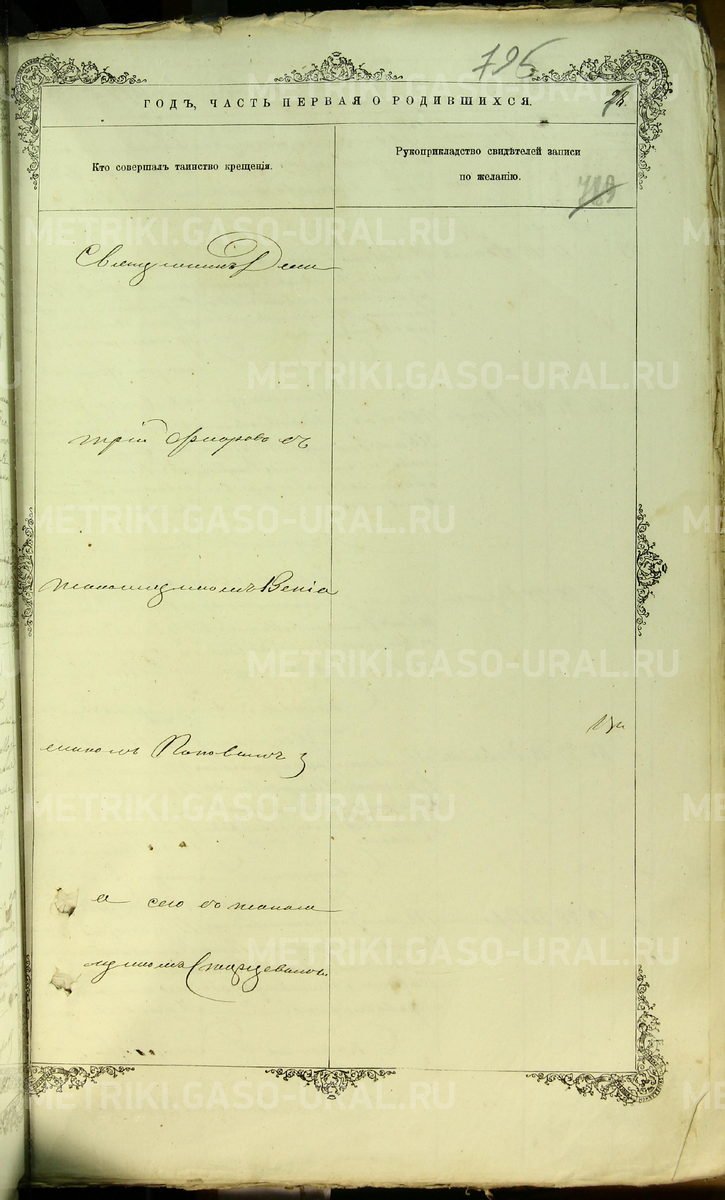 795
ГОДЪ, ЧАСТЬ ПЕРВАЯ О РОДИВШИХСЯ.
Кто совершалъ таинство крещенія.
Рукоприкладство свидѣтелей записи
по желанію.
Священникъ Дими
трій Флорово съ
псаломщикомъ Веніа
миномъ Поповымъ
а сего съ псалом
щикомъ
METRIKI.GASO-URAL.RU